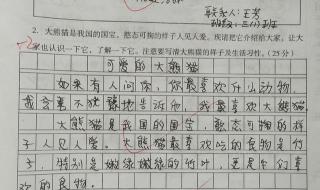 联系人:王芳
2. 大熊猫是我国的国宝,憨态可掬的样子人见人爱。现请把它介绍给大家,让大
家也认识一下它,了解一下它。注意要写清大熊猫的样子及生活习性。(25分)
可爱的大熊猫
如果有人问你,你最喜欢什么动物,
我会毫不犹豫地告诉他,我最喜欢大熊猫。
大熊猫是我国的国宝,憨态可掬的样
子人见人爱。大熊猫最喜欢吃的食物是竹
子,特别是嫩绿嫩绿的竹叶,更是它们喜
欢的食物。